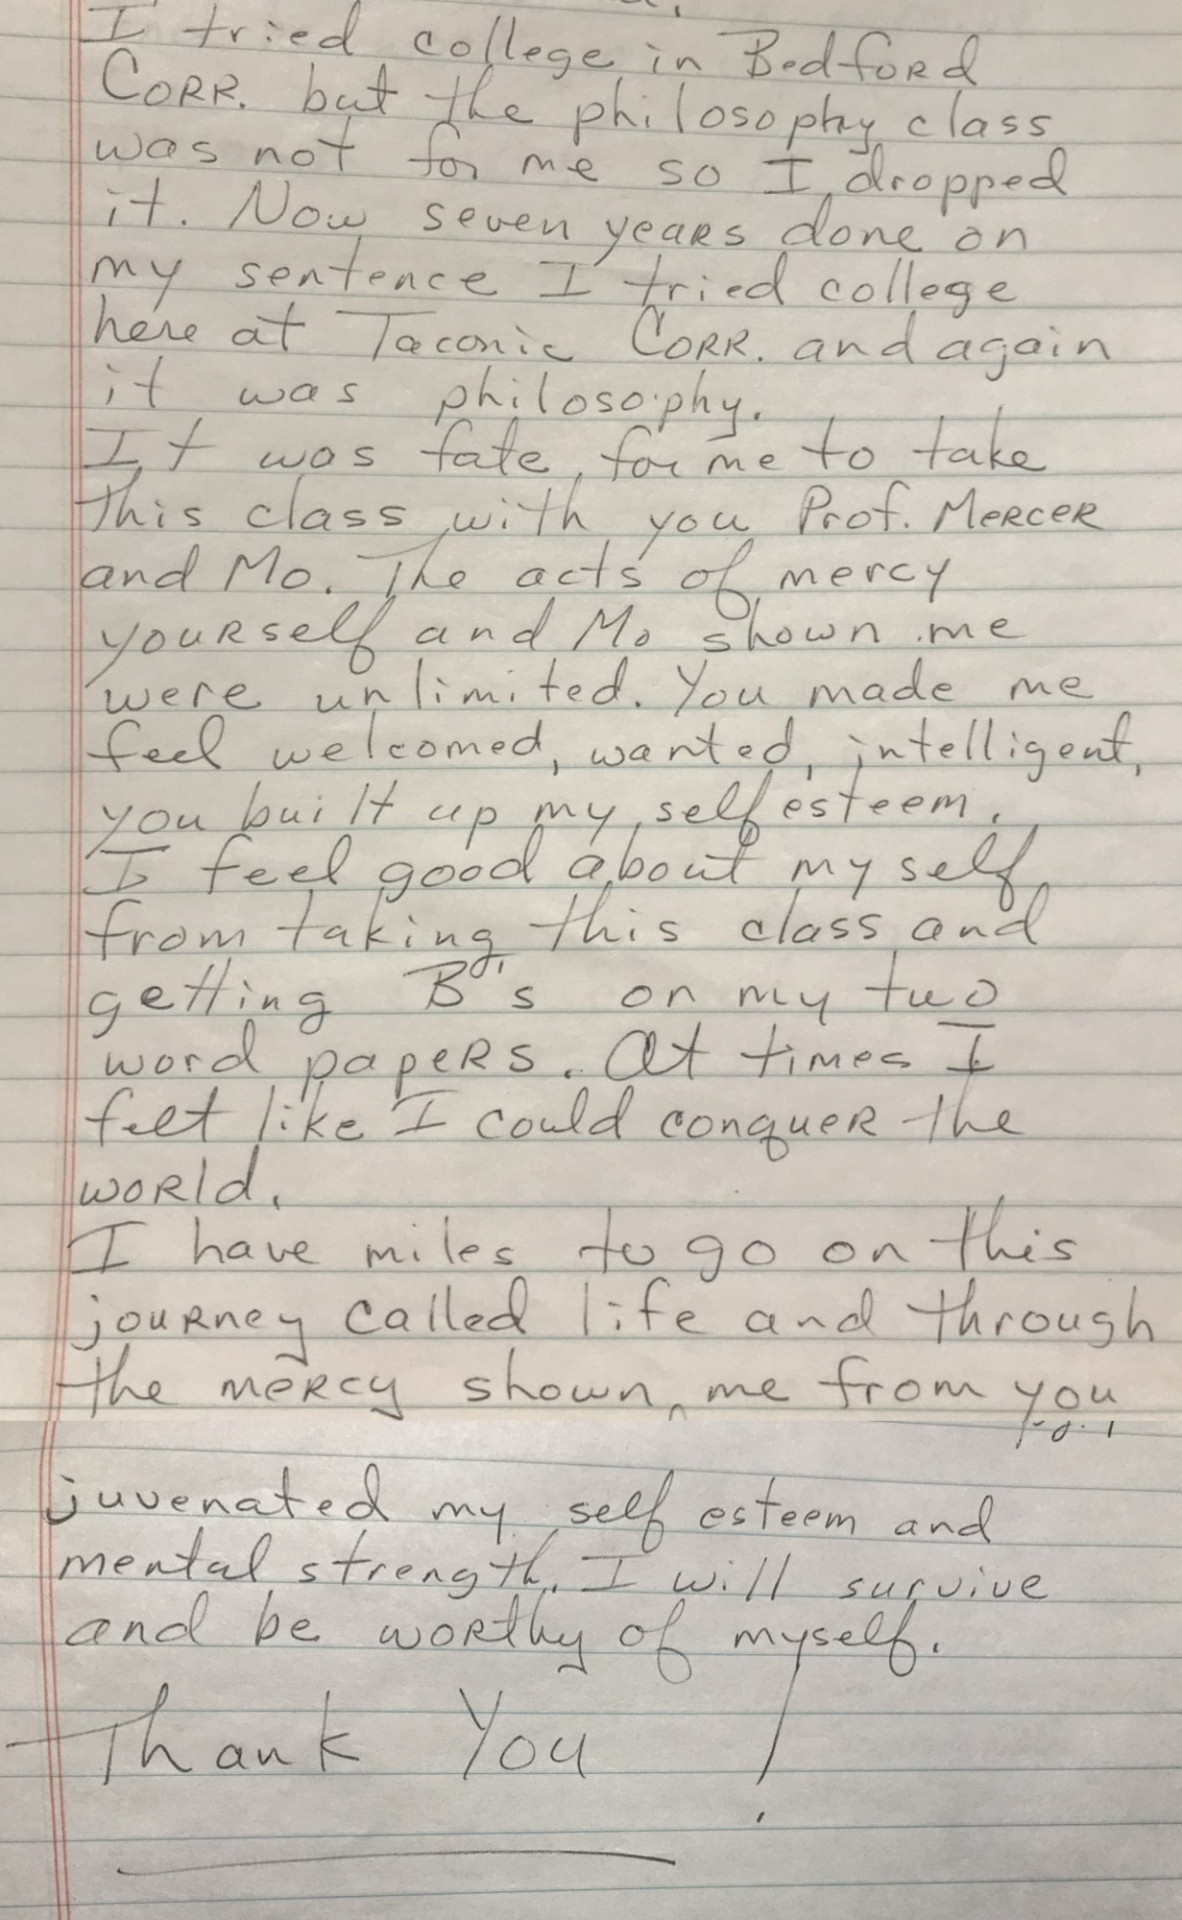 I tried college in Bedford
Corr. but the philosophy class
was not for me so I dropped
it. Now seven years done on
my sentence I tried college
here at Taconic Corr. and again
it was philosophy.
It was fate, for me to take
this class with you Prof. Mercer
and Mo. The acts of mercy
yourself and Mo shown me
were unlimited. You made me
feel welcomed, wanted, intelligent,
you built up my self esteem.
I feel good about myself
from taking this class and
getting B's on my two
word papers. At times I
felt like I could conquer the
world.
I have miles to go on this
journey called life and through
the mercy shown me from you
pg. 1
juvenated my self esteem and
mental strength. I will survive
and be worthy of myself.
Thank You !